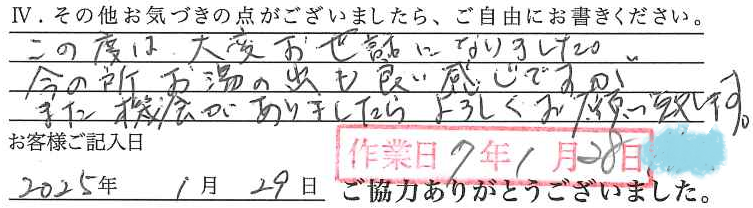 Ⅳ．その他お気づきの点がございましたら、ご自由にお書きください。
この度は、大変お世話になりました。
今の所お湯の出も良い感じですが、
また機会がありましたらよろしくお願い致します。
お客様ご記入日
作業日 7年1月28日
2025年 1月 29日 ご協力ありがとうございました。